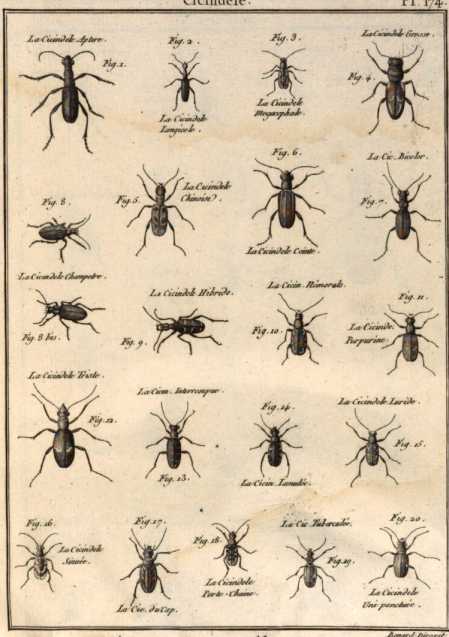 Cicindele. Pl. 174.
La Cicindele Aptere.
Fig. 1.
Fig. 2.
La Cicindele
Longicole.
Fig. 3.
La Cicindele
Megacephale.
La Cicindele Grosse.
Fig. 4.
Fig. 5.
La Cicindele
Chinoise.
Fig. 6.
La Cicindele Cointe.
La Cic. Bicolor.
Fig. 7.
Fig. 8.
La Cicindele Champetre.
Fig. 8 bis.
La Cicindele Hibride.
Fig. 9.
La Cicin. Némorale.
Fig. 10.
Fig. 11.
La Cicinde.
Purpurine.
La Cicindele Triste.
Fig. 12.
La Cicin. Interrompue.
Fig. 13.
Fig. 14.
La Cicin. Lunulée.
La Cicindele Luride.
Fig. 15.
Fig. 16.
La Cicindele
Sinuée.
Fig. 17.
La Cic. du Cap.
Fig. 18.
La Cicindele
Porte-Chaine.
La Cic. Tuberculée.
Fig. 19.
Fig. 20.
La Cicindele
Uni-ponctuée.
Benard Direxit.